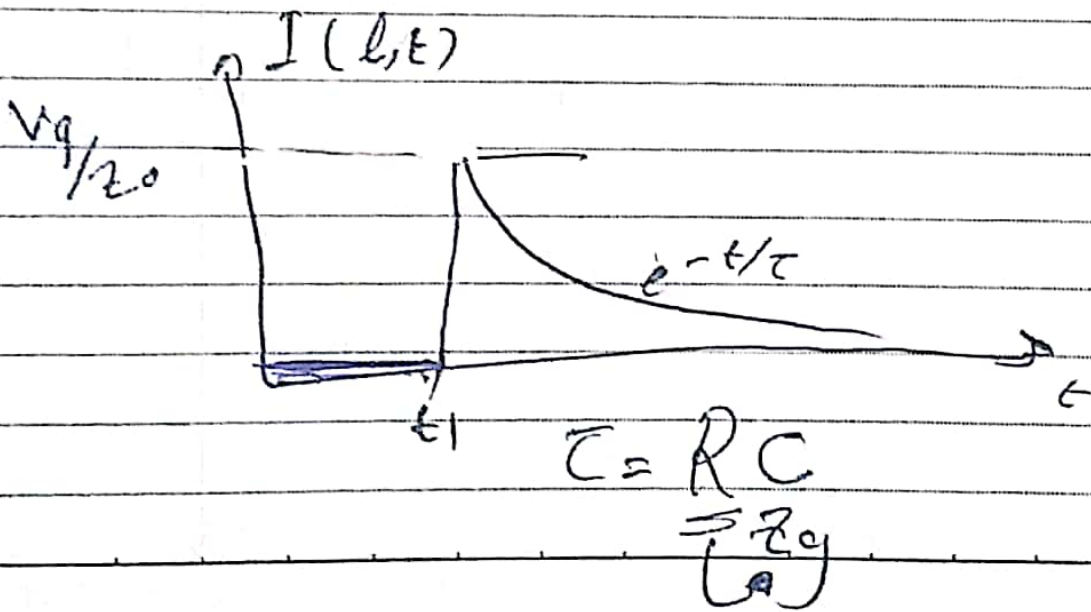 I(l,t)
Vg/z₀
e^-t/τ
t1
t
τ = RC
= Zg